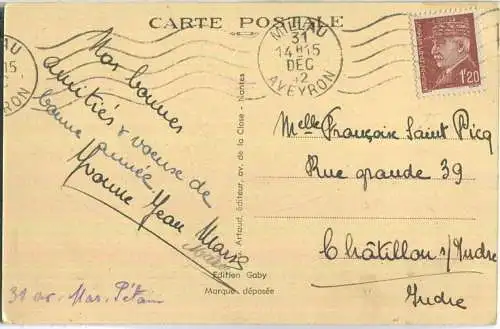 CARTE POSTALE
AU
15
EYRON
MILLAU
31
14H15
DEC
42
AVEYRON
1F20
Nos bonnes
amitiés & voeux de
bonne année
Yvonne Jean
31 av. Mar. Pétain
Artaud, éditeur, av. de la Close - Nantes
Edition Gaby
Marque déposée
Melle Françoise Saint Picq
Rue grande 39
Châtillon s/Indre
Indre